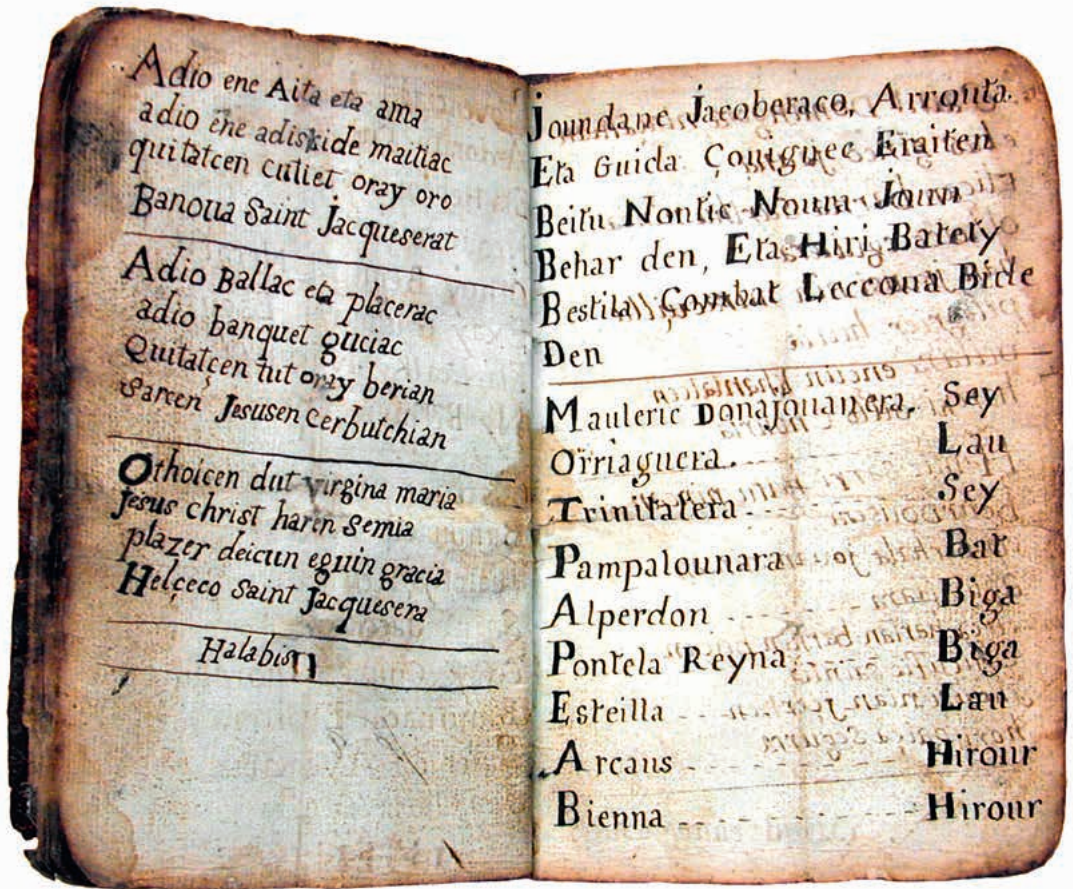 Adio ene Aita eta ama
adio ene adiskide maitiac
quitatcen cutiet oray oro
Banoua Saint Jacqueserat
Adio Ballac eta placerac
adio banquet guciac
Quitatçen tut oray berian
Sarcen Jesusen cerbutchian
Othoicen dut virgina maria
Jesus christ haren Semia
plazer deicun eguin gracia
Helçeco Saint Jacquesera
Halabison
Joundane Jacoberaco, Arrouta
Eta Guida Çouiguec Eraiten
Beitu Nontic Noura Joun
Behar den, Eta Hiri Batety
Bestila Combat Leccoua Bide
Den
Mauleric Donajouanera, Sey
Orriaguera. Lau
Trinitatera Sey
Pampalounara Bat
Alperdon Biga
Pontela Reyna Biga
Esteilla Lau
Arcaus Hirour
Bienna Hirour